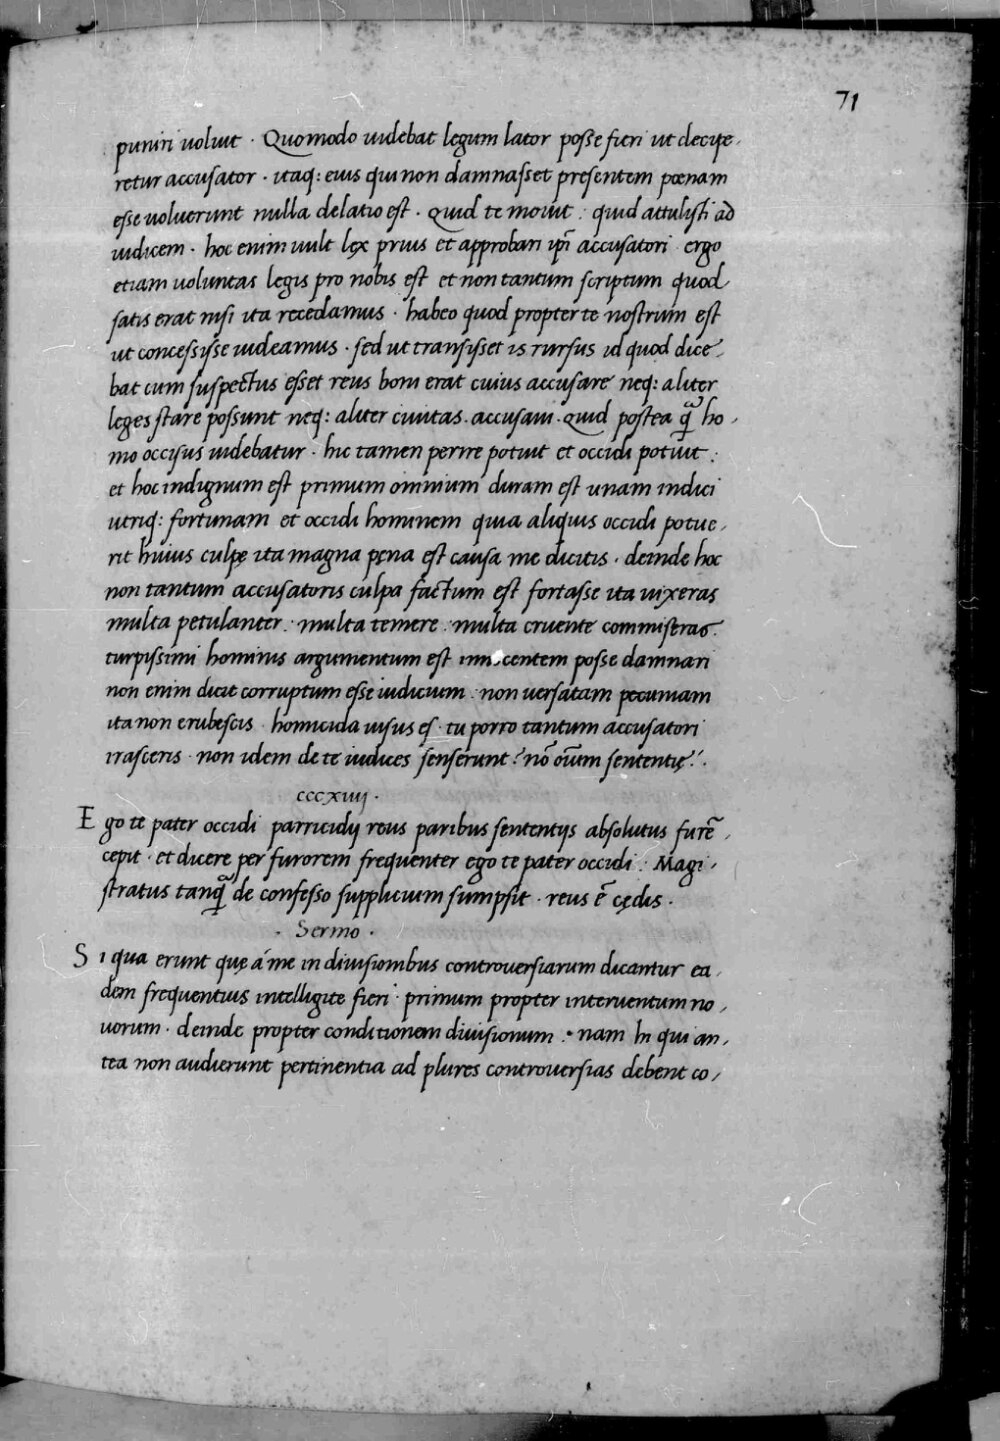 71
puniri voluit · Quomodo uidebat legum lator posse fieri ut decipe,
retur accusator · itaq: eius qui non damnasset presentem poenam
esse uoluerunt nulla delatio est · quid te mouit : quid attulisti ad
iudicem · hoc enim uult lex prius et approbari ipī accusatori · ergo
etiam uoluntas legis pro nobis est et non tantum scriptum quod
satis erat nisi ita recedamus · habeo quod propter te nostrum est
ut concessisse uideamus · sed ut transisset is rursus id quod dice,
bat cum suspectus esset reus boni erat ciuius accusare neq: aliter
leges stare possunt neq: aliter ciuitas . accusaui . quid postea q̄ ho,
mo occisus uidebatur · hic tamen perire potuit et occidi potuit :
et hoc indignum est primum omnium duram est unam indici
utriq: fortunam et occidi hominem quia aliquis occidi potue,
rit huius culpę ita magna pęna est causa me dicitis · deinde hoc
non tantum accusatoris culpa factum est fortasse ita uixeras
multa petulanter · multa temere · multa cruente commiseras .
turpissimi hominis argumentum est innocentem posse damnari
non enim dicit corruptum esse iudicium · non uersatam pecuniam
ita non erubescis · homicida uisus es · tu porro tantum accusatori
irasceris · non idem de te iudices senserunt ? nō oīum sententię ? ·
cccxiiij ·
Ego te pater occidi parricidij reus paribus sententijs absolutus furē,
cepit · et dicere per furorem frequenter ego te pater occidi : Magi,
stratus tanq̄ de confesso supplicium sumpsit · reus ē cędis ·
· Sermo ·
Si qua erunt quę á me in diuisionibus controuersiarum dicantur ea,
dem frequentius intelligite fieri · primum propter interuentum no,
uorum · deinde propter conditionem diuisionum : · nam hi qui an,
tea non audierunt pertinentia ad plures controuersias debent co,